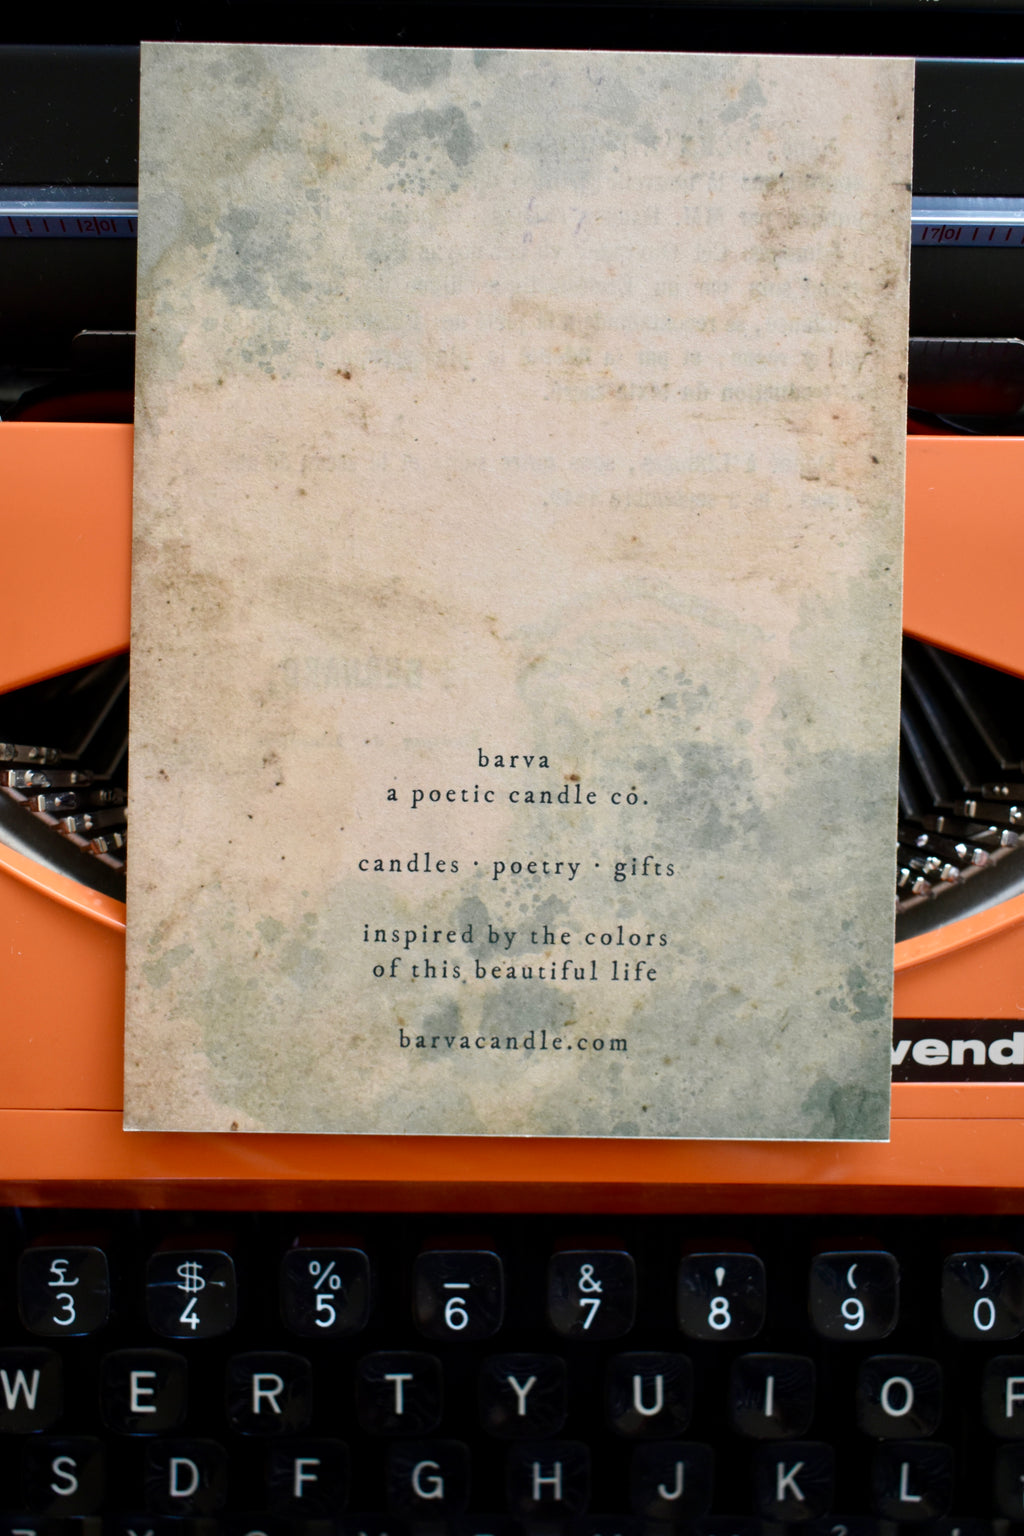 20
70
barva
a poetic candle co.
candles · poetry · gifts
inspired by the colors
of this beautiful life
barvacandle.com
vend
£ $ % _ & ' ( )
3 4 5 6 7 8 9 0
W E R T Y U I O
S D F G H J K L